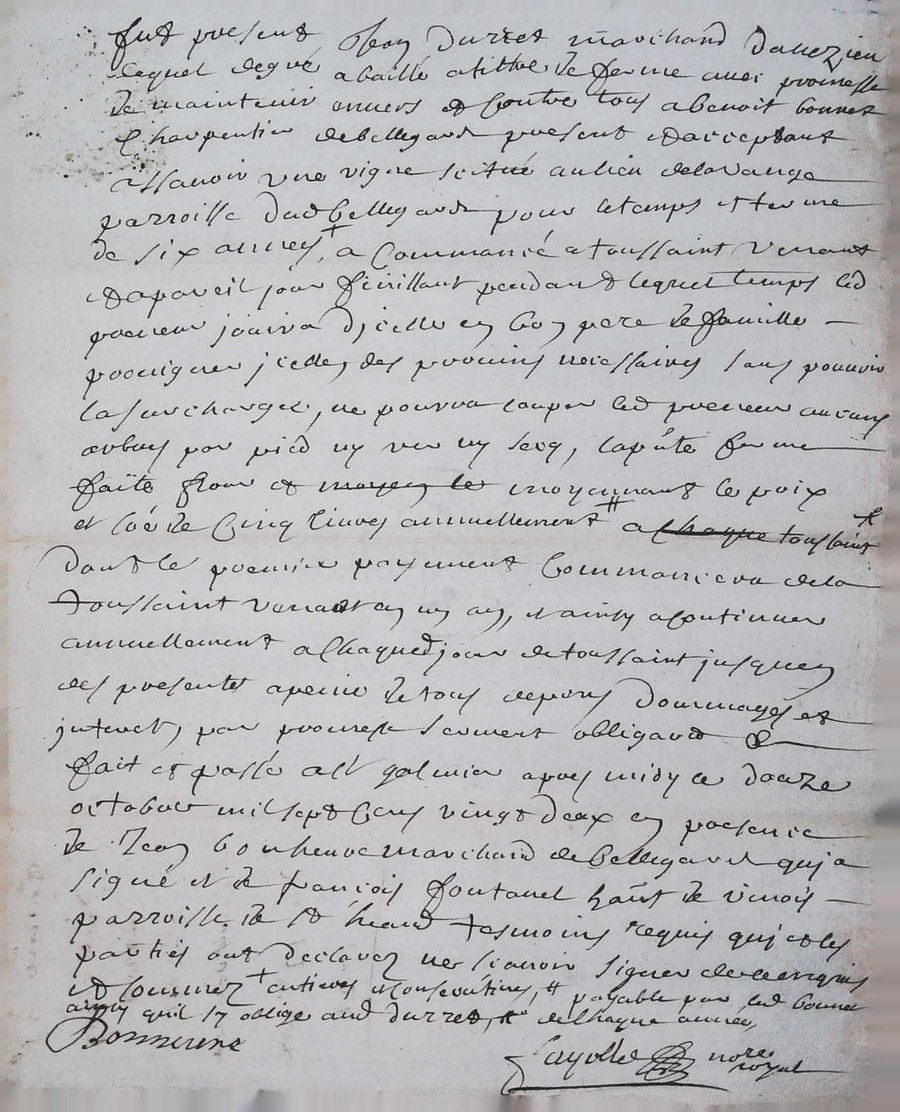 fut present Jean Durret marchand davezieu
lequel de gré a baillé a tiltre de ferme avec promesse
de maintenir envers et contre tous a benoit bonnet
Charpentier de bellegard present et acceptant
assavoir une vigne scitué au lieu de
parroisse dud bellegard pour le temps et terme
de six années + a Commancé a toussaint venant
et a pareil jour finissant pendant lequel temps led
preneur jouira d'icelle en bon pere de famille
provigner icelle, des provins necessaires sans pouvoir
la surcharger, ne pourra couper led preneur aucuns
arbres par pied ny ver ny secq, la pnte ferme
faitte pour et moyen le moyennant le prix
et de Cinq livres annuellement # a chaque toussaint
dont le premier payement Commancera de la
toussaint venant en un an, et ainsy a continuer
annuellement a Chaque jour de toussaint
des presentes a peine de tous depens dommages et
interets, par promesse serment obligaon &
fait et passé a St galmier apres midy ce douze
octobre mil sept Cens vingt deux en presence
de Jean bonheure marchand de bellegard qui a
signé et de françois fontanel hant de
parroisse de St heand tesmoins requis qui et les
parties ont declarez ne scavoir signer de ce enquis
et sommez + entieres et consecutives, # payable par led bonnet
ainsy qu'il s'y oblige aud durret, de Chaque année,
Bonneure
fayolle nore
royal